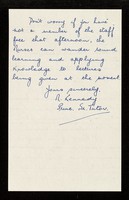 Don't worry if you have
not a member of the staff
free that afternoon, the
Nurses can wander round
learning and applying
knowledge to lectures
being given at the moment.
Yours sincerely,
R Kennedy
Tutor.